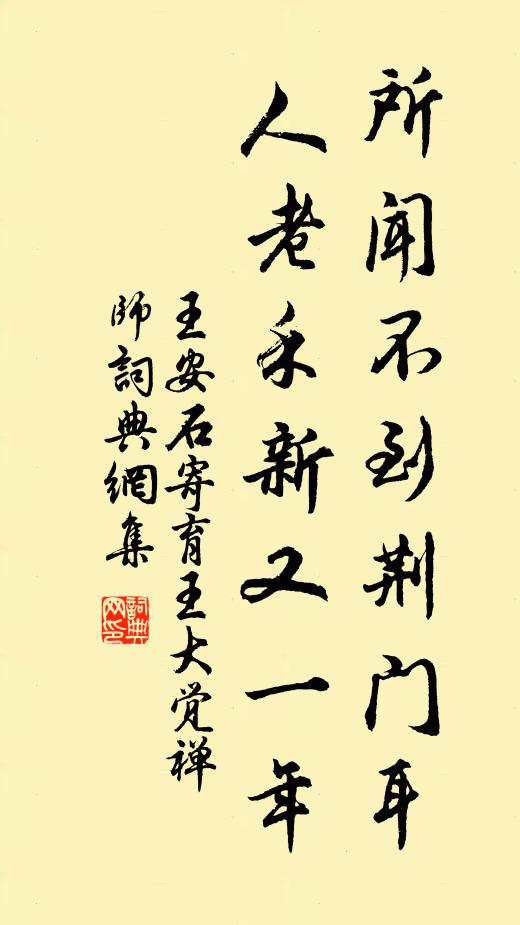 所聞不到荆门耳
人老禾新又一年
王安石寄育王大觉禅
師詞典網集
詞典
网印